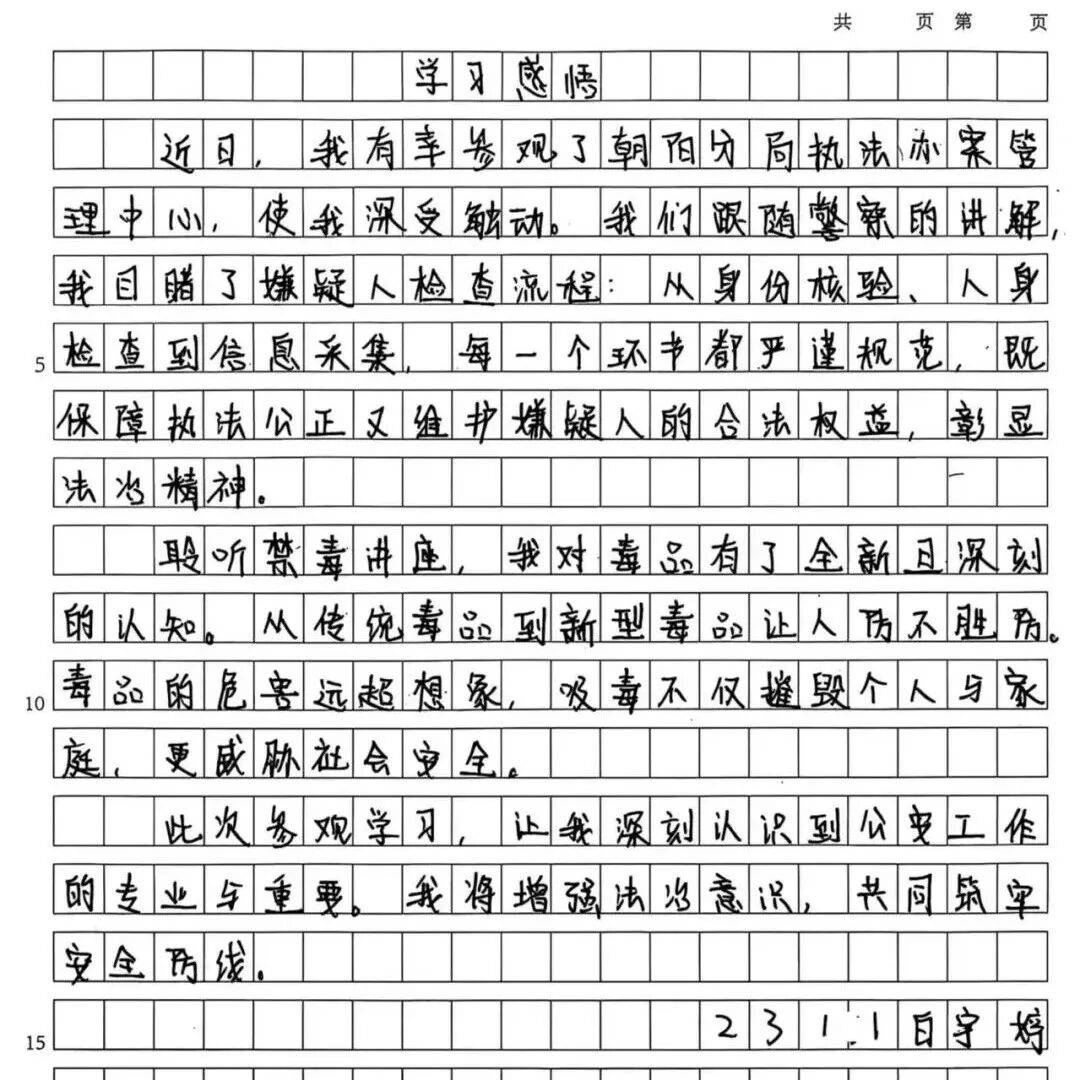 共 页 第 页
学习感悟
近日，我有幸参观了朝阳分局执法办案管
理中心，使我深受触动。我们跟随警察的讲解，
我目睹了嫌疑人检查流程：从身份核验、人身
5 检查到信息采集，每一个环节都严谨规范，既
保障执法公正又维护嫌疑人的合法权益，彰显
法治精神。
聆听禁毒讲座，我对毒品有了全新且深刻
的认知。从传统毒品到新型毒品让人防不胜防。
10 毒品的危害远超想象，吸毒不仅摧毁个人与家
庭，更威胁社会安全。
此次参观学习，让我深刻认识到公安工作
的专业与重要。我将增强法治意识，共同筑牢
安全防线。
15 2311白宇婷